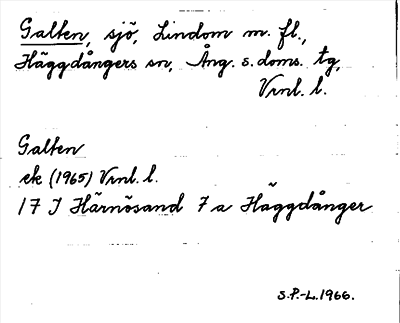 Galten, sjö, Lindom m. fl.,
Häggdångers sn, Ång. s. doms. tg,
Vrnl. l.
Galten
ek (1965) Vrnl. l.
17 J Härnösand 7 a Häggdånger
S.P.-L. 1966.